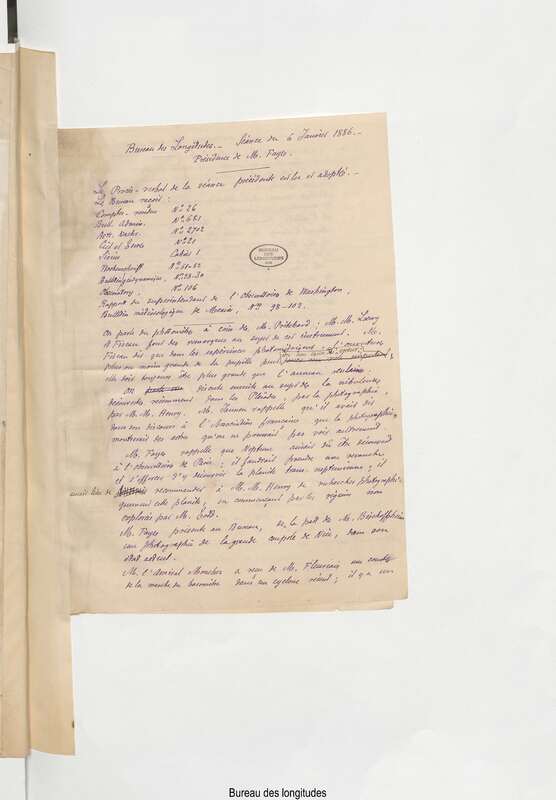 Bureau des Longitudes. - Séance du 6 Janvier 1886. -
Présidence de M. Faye.
Le Procès-verbal de la séance précédente est lu et adopté. -
Le Bureau reçoit :
Comptes-rendus N° 26
Bull. Admin. N° 681
Ast. Nachr. N° 2702
Ciel et Terre N° 21
Sirius Cahier 1
Wochenschrift N° 51-52
N° 29-30
Observatory N° 106
Rapport du superintendant de l'observatoire de Washington.
Bulletin météorologique de N° 98-102.
BUREAU DES LONGITUDES
On parle du photomètre à coin de M. Pritchard ; M. M. Loewy
et Fizeau font des remarques au sujet de cet instrument. M.
Fizeau dit que dans les expériences photométriques, l'ouverture
plus ou moins grande de la pupille peut
elle doit toujours être plus grande que l'anneau oculaire.
On discute ensuite au sujet de la nébuleuse
découverte récemment dans les Pléiades, par la photographie,
par M. M. Henry. M. Janssen rappelle qu'il avait dit
dans son discours à l'Association française que la photographie
montrerait des astres qu'on ne pouvait pas voir autrement.
M. Faye rappelle que Neptune aurait dû être découvert
à l'observatoire de Paris ; il faudrait prendre une revanche
et s'efforcer d'y découvrir la planète trans-neptunienne ; il
aurait lieu de recommander à M. M. Henry de rechercher photographi-
quement cette planète, en commençant par les régions non
explorées par M. Todd.
M. Faye présente au Bureau, de la part de M. Bischoffsheim
une photographie de la grande coupole de Nice, dans son
état actuel.
M. l'Amiral Mouchez a reçu de M. Fleuriais une courbe
de la marche du baromètre dans un cyclone récent ; il y a un
Bureau des longitudes